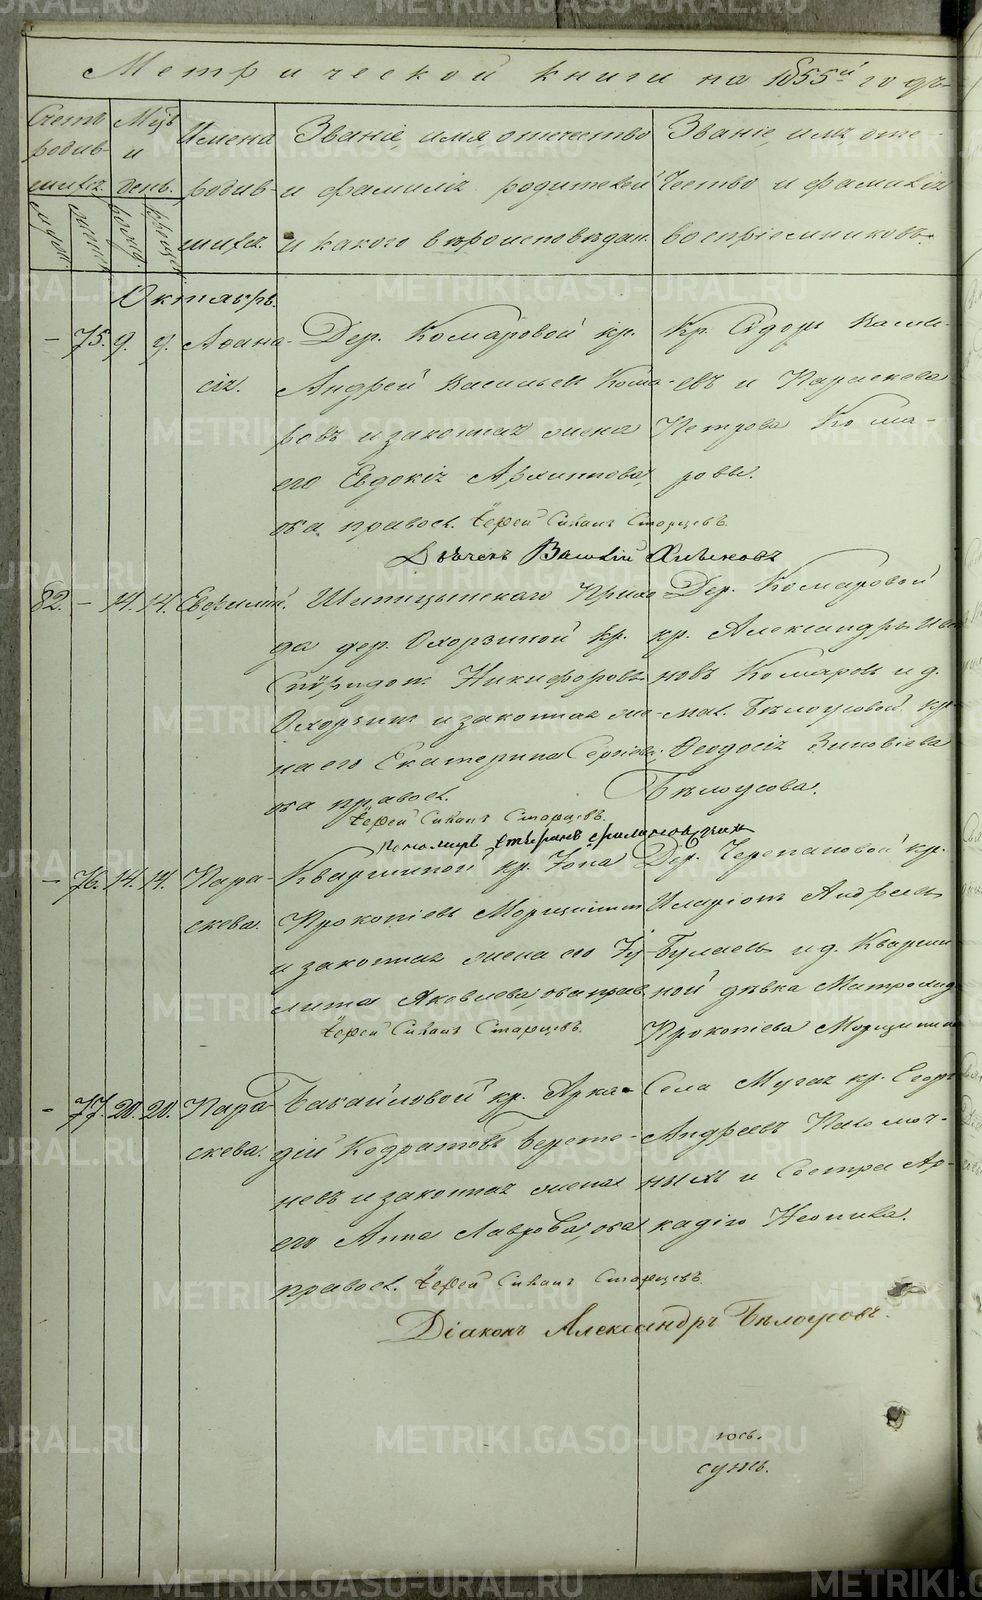 Метрической книги на 1855й годъ
Счетъ родив-шихся
муж.
женск.
Мѣсъ и день.
рожд.
крещен.
Имена родив-шихся.
Званіе, имя, отчество и фамилія родителей и какого вѣроисповѣдан.
Званіе, имя, оте-чество и фамилія воспріемниковъ.
Октябрь.
– 75. 9. 9. Аѳана-сія.
Дер. Комаровой кр.
Андрей Васильевъ Кома-
ровъ и законная жена
его Евдокія Архиппова,
оба правосл. Іерей Стефанъ Старцевъ.
Кр. Сидоръ Васил-
евъ и Параскева
Петрова Кома-
ровы.
Дьячекъ Василій Хлыновъ
82. – 14. 14. Евѳимій.
Шипицынскаго Прихо
да дер. Охорзиной кр.
Спиридонъ Никифоровъ
Охорзинъ и законная же-
на его Екатерина Сергіева,
оба правосл.
Іерей Стефанъ Старцевъ.
Дер. Комаровой
кр. Александръ Ива
новъ Комаровъ и д.
мал. Бѣлоусовой кр.
Ѳеодосія Зиновіева
Бѣлоусова.
Пономарь
– 76. 14. 14. Пара-скева.
Квашниной кр. Іона
ПрокопіевъМорщининъ
и законная жена его Іу-
лита Яковлева оба прав.
Іерей Стефанъ Старцевъ.
Дер. Черепановой кр.
Иларіонъ Андреевъ
Булаевъ и д. Квашни
ной дѣвка Матрона
Прокопіева Морщинина
– 77. 20. 20. Пара-скева.
Бакайловой кр. Арка-
дій Кодратовъ Верете-
невъ и законная жена
его Анна Лаврова, оба
правосл. Іерей Стефанъ Старцевъ.
Села Мугая кр. Егоръ
Андреевъ Пономоч-
ныхъ и Сестра Ар-
кадію Неонила.
Діаконъ Александръ Бѣлоусовъ.
METRIKI.GASO-URAL.RU